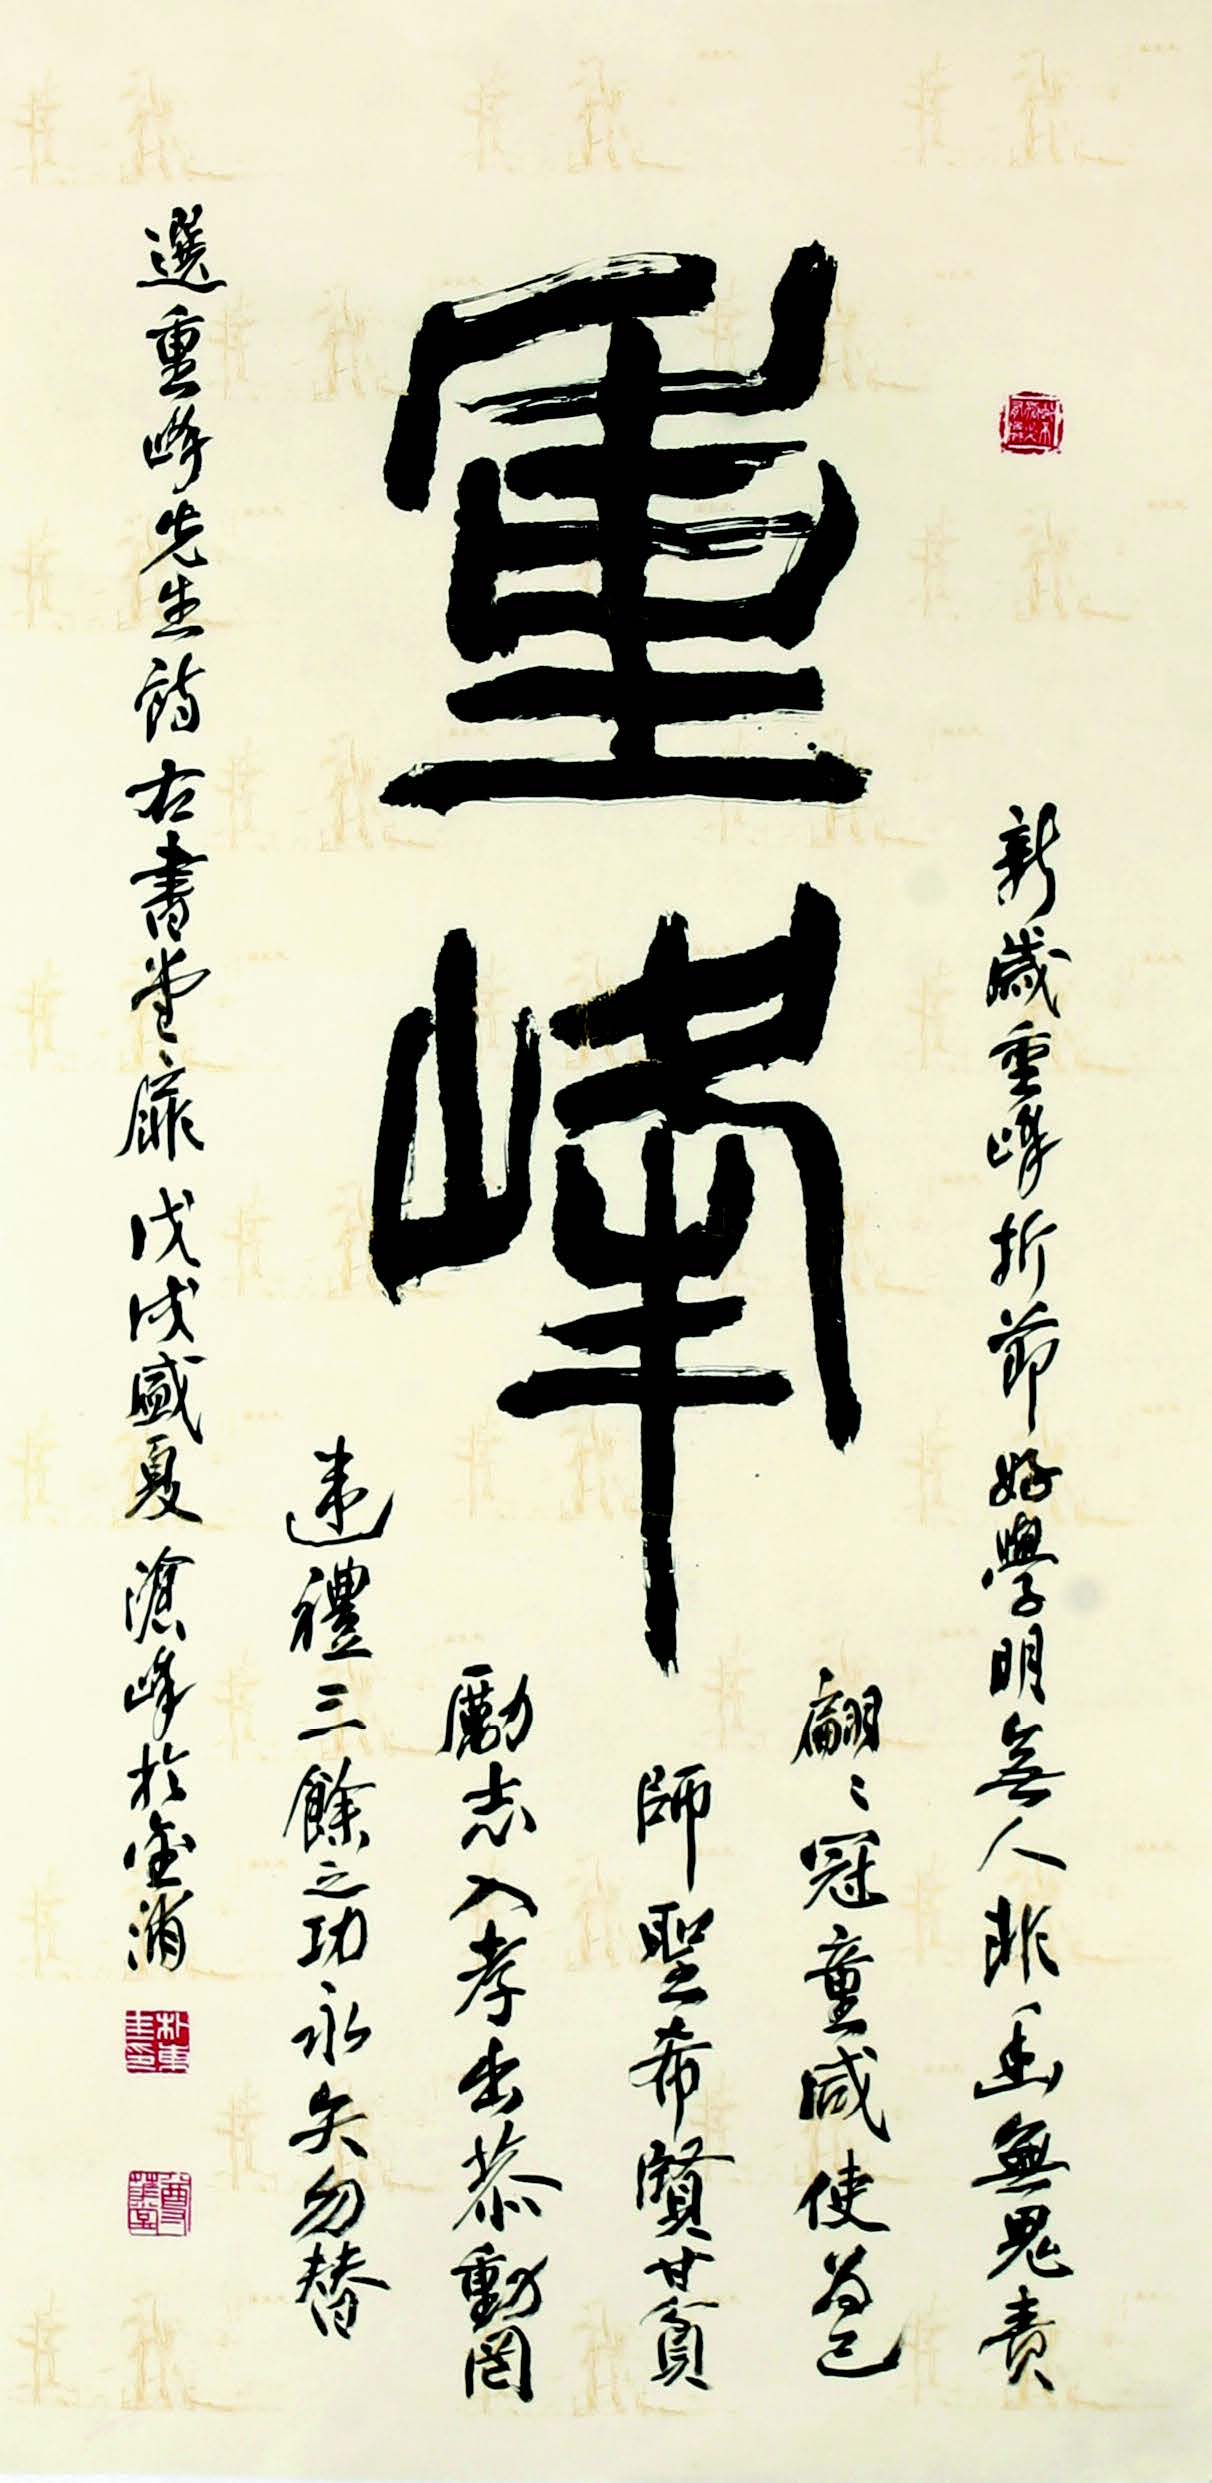 重峰
新歲重峰折節好學明無人非幽無鬼責
翩〻冠童咸使爲己
師聖希賢甘貧
勵志入孝出恭動罔
違禮三餘之功永矢勿替
選重峰先生詩右書堂扉 戊戌盛夏 滄峰於金浦